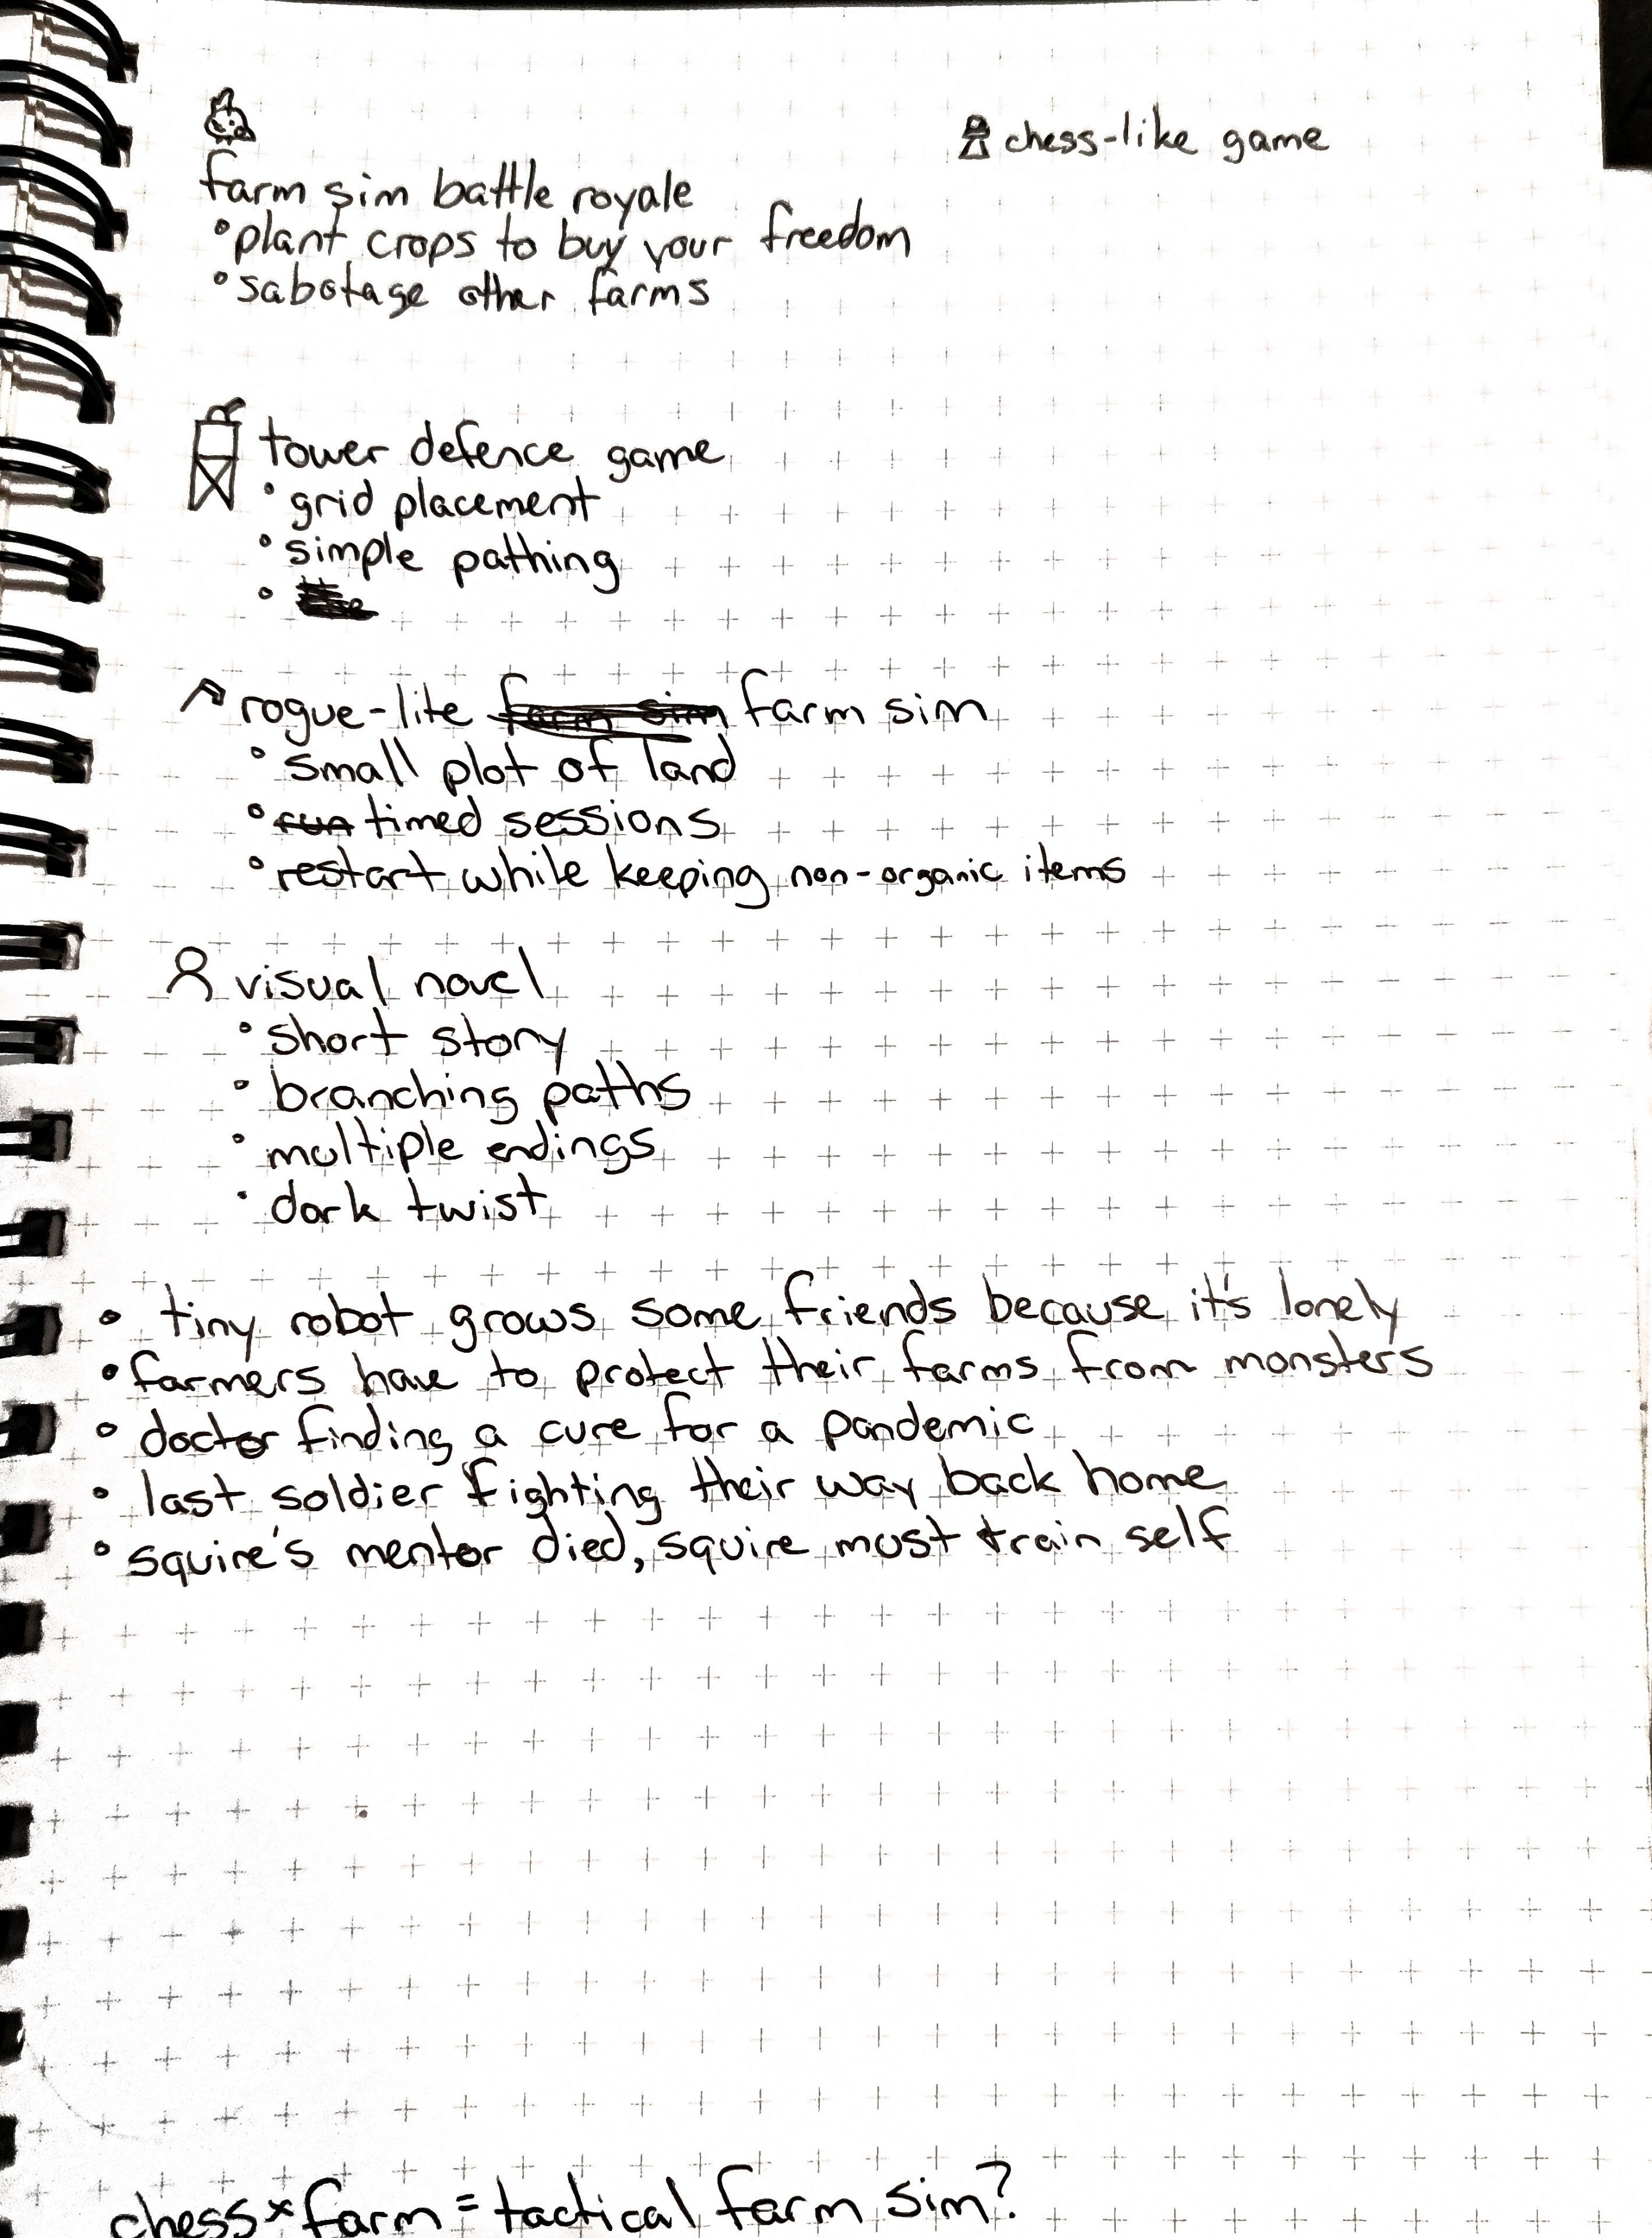 chess-like game
farm sim battle royale
• plant crops to buy your freedom
• sabotage other farms
tower defence game
• grid placement
• simple pathing
•
rogue-lite farm sim farm sim
• small plot of land
• run timed sessions
• restart while keeping non-organic items
visual novel
• short story
• branching paths
• multiple endings
• dark twist
• tiny robot grows some friends because it's lonely
• farmers have to protect their farms from monsters
• doctor finding a cure for a pandemic
• last soldier fighting their way back home
• squire's mentor died, squire must train self
chess × farm = tactical farm sim?